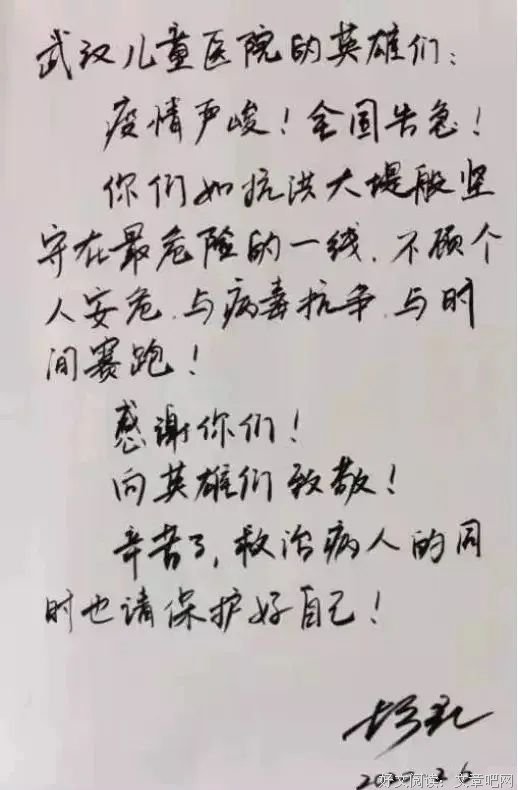 武汉儿童医院的英雄们:
疫情严峻!全国告急!
你们如抗洪大堤般坚
守在最危险的一线,不顾个
人安危,与病毒抗争,与时
间赛跑!
感谢你们!
向英雄们致敬!
辛苦了,救治病人的同
时也请保护好自己!
好文阅读:文章吧网